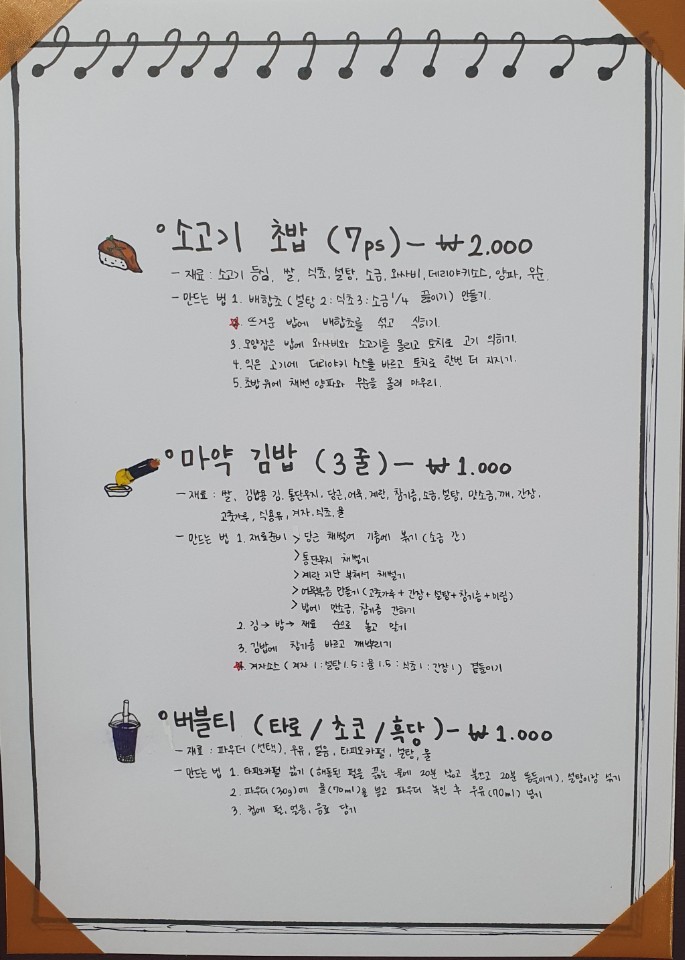 소고기 초밥 (7ps) - ₩ 2.000
- 재료 : 소고기 등심, 쌀, 식초, 설탕, 소금, 와사비, 데리야키소스, 양파, 무순.
- 만드는 법 1. 배합초 (설탕 2 : 식초 3 : 소금 1/4 끓이기) 만들기.
뜨거운 밥에 배합초를 섞고 식히기.
3. 모양잡은 밥에 와사비와 소고기를 올리고 토치로 고기 익히기.
4. 익은 고기에 데리야키 소스를 바르고 토치로 한번 더 지지기.
5. 초밥 위에 채썬 양파와 무순을 올려 마무리.
마약 김밥 (3줄) - ₩ 1.000
- 재료 : 쌀, 김밥용 김, 통단무지, 당근, 어묵, 계란, 참기름, 소금, 설탕, 맛소금, 깨, 간장,
고춧가루, 식용유, 겨자, 식초, 물
- 만드는 법 1. 재료준비 > 당근 채썰어 기름에 볶기 (소금 간)
> 통단무지 채썰기
> 계란 지단 부쳐서 채썰기
> 어묵볶음 만들기 (고춧가루 + 간장 + 설탕 + 참기름 + 미림)
> 밥에 맛소금, 참기름 간하기
2. 김 → 밥 → 재료 순으로 놓고 말기
3. 김밥에 참기름 바르고 깨뿌리기
겨자소스 (겨자 1 : 설탕 1.5 : 물 1.5 : 식초 1 : 간장 1) 곁들이기
버블티 (타로 / 초코 / 흑당) - ₩ 1.000
- 재료 : 파우더 (선택), 우유, 얼음, 타피오카펄, 설탕, 물
- 만드는 법 1. 타피오카펄 삶기 (해동된 펄을 끓는 물에 20분 삶고 불끄고 20분 뜸들이기), 설탕이랑 섞기
2. 파우더(30g)에 물(70ml)을 붓고 파우더 녹인 후 우유(70ml) 넣기
3. 컵에 펄, 얼음, 음료 담기